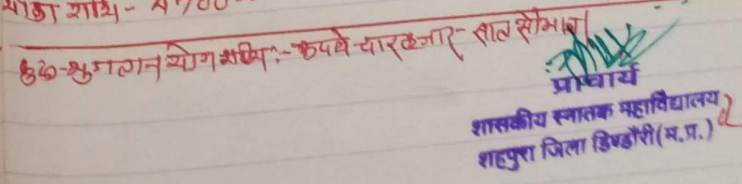 राशि - 4700
कुल भुगतान योग्य राशि :- रूपये चार हजार सात सौ मात्र
प्राचार्य
शासकीय स्नातक महाविद्यालय
शहपुरा जिला डिण्डौरी (म.प्र.)